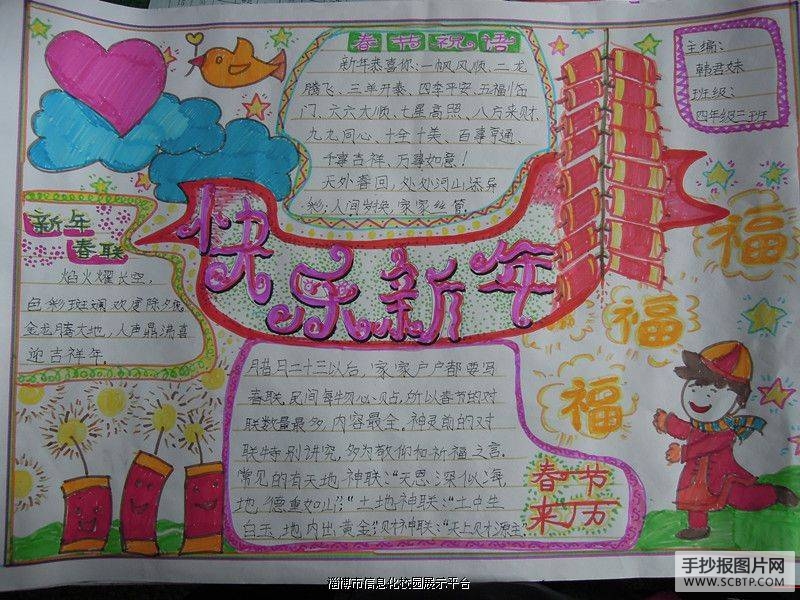 春节祝语
新年恭喜你：一帆风顺、二龙
腾飞、三羊开泰、四季平安、五福临
门、六六大顺、七星高照、八方来财
九九同心、十全十美、百事亨通、
千事吉祥、万事如意！
天外春回，处处河山添异
彩；人间岁换，家家丝管
主编：
韩君妹
班级：
四年级三班
新年
春联
焰火耀长空，
色彩斑斓欢度除夕夜
金龙腾大地，人声鼎沸喜
迎吉祥年。
快乐新年
福
福
福
腊月二十三以后，家家户户都要写
春联，民间每物必贴，所以春节的对
联数量最多，内容最全。神灵前的对
联特别讲究，多为敬仰和祈福之言。
常见的有天地神联："天恩深似海，
地德重如山；"土地神联："土中生
白玉，地内出黄金"；财神联："天上财源主
春节
来历
淄博市信息化校园展示平台
手抄报图片网
WWW.SCBTP.COM